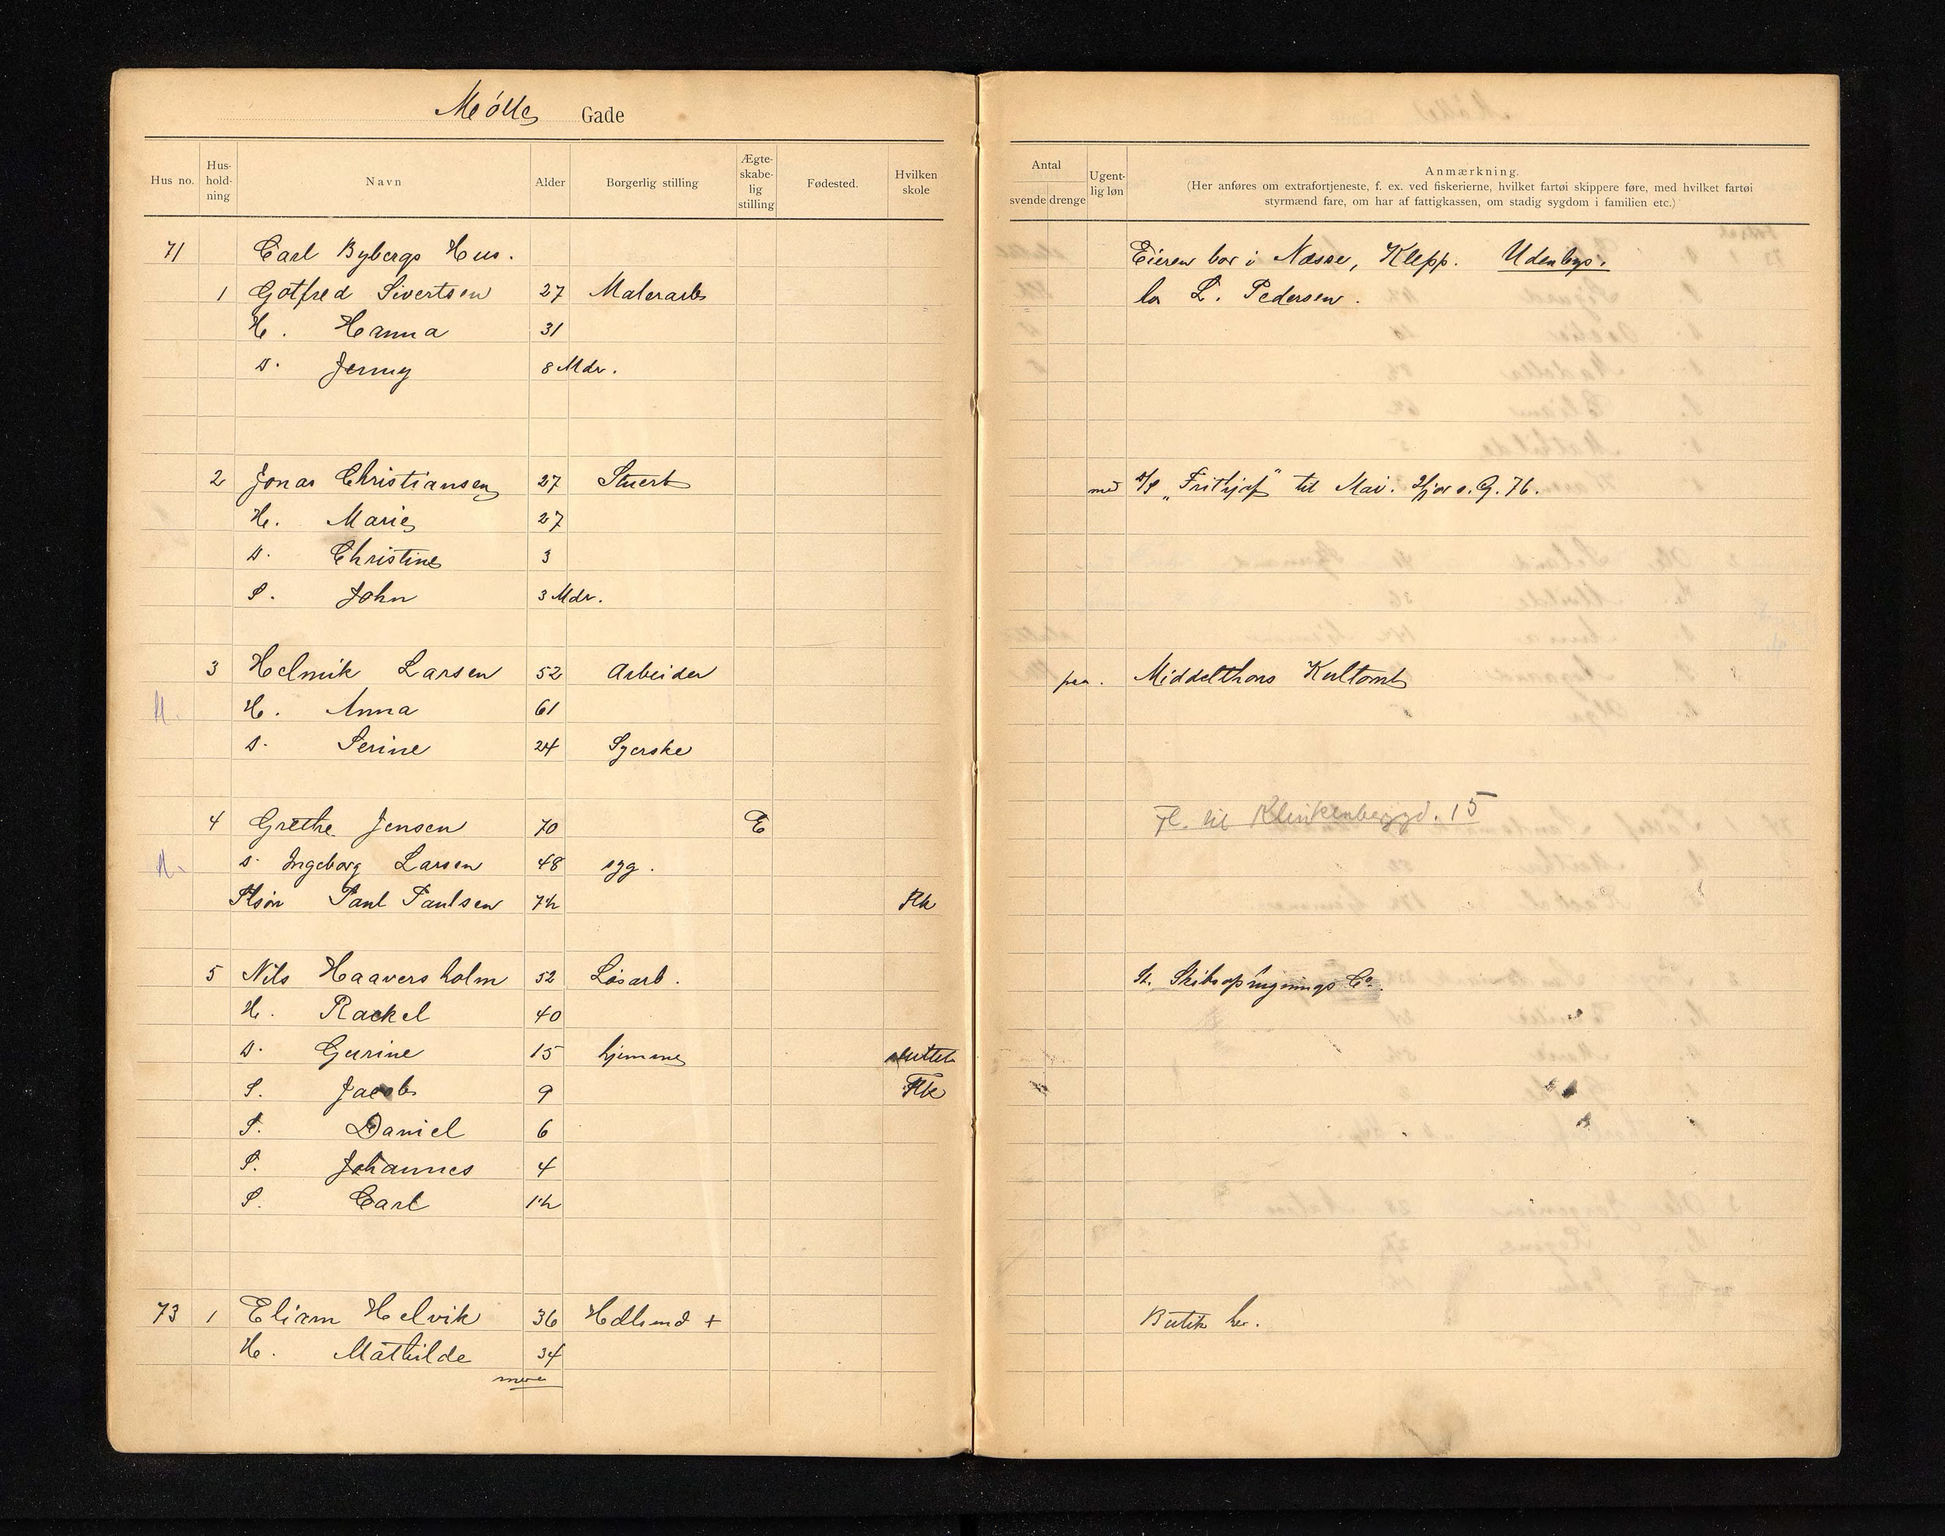 Mølle Gade
Hus no. Hus-hold-ning Navn Alder Borgerlig stilling Ægte-skabe-lig stilling Fødested. Hvilken skole Antal svende drenge Ugent-lig løn Anmærkning.
(Her anføres om extrafortjeneste, f. ex. ved fiskerierne, hvilket fartøi skippere føre, med hvilket fartøi
styrmænd fare, om har af fattigkassen, om stadig sygdom i familien etc.)
71 Carl Bybergs Hus. Eieren bor i Næsse, Klepp. Udenbys.
1 Gotfred Sivertsen 27 Malerarb hos L. Pedersen.
H. Hanna 31
D. Jenny 8 Mdr.
2 Jonas Christiansen 27 Stuert med D/S "Frithjof" til Mai. G. 76.
H. Marie 27
D. Christine 3
S. John 3 Mdr.
3 Helmik Larsen 52 Arbeider paa. Middelthons Kultomt
H. Anna 61
D. Serine 24 Syerske
4 Grethe Jensen 70 E Fl. til Klinkenberggd. 15
D. Ingeborg Larsen 48 syg.
Plsøn Paul Paulsen 7½ Flk
5 Nils Haaversholm 52 Løsarb. St. Skibsophugnings Co.
H. Rackel 40
D. Gurine 15 hjemme sluttet
S. Jacob 9 Flk
S. Daniel 6
S. Johannes 4
S. Carl 1½
73 1 Eliam Helvik 36 Hdlsmd + Butik her.
H. Mathilde 34
mere